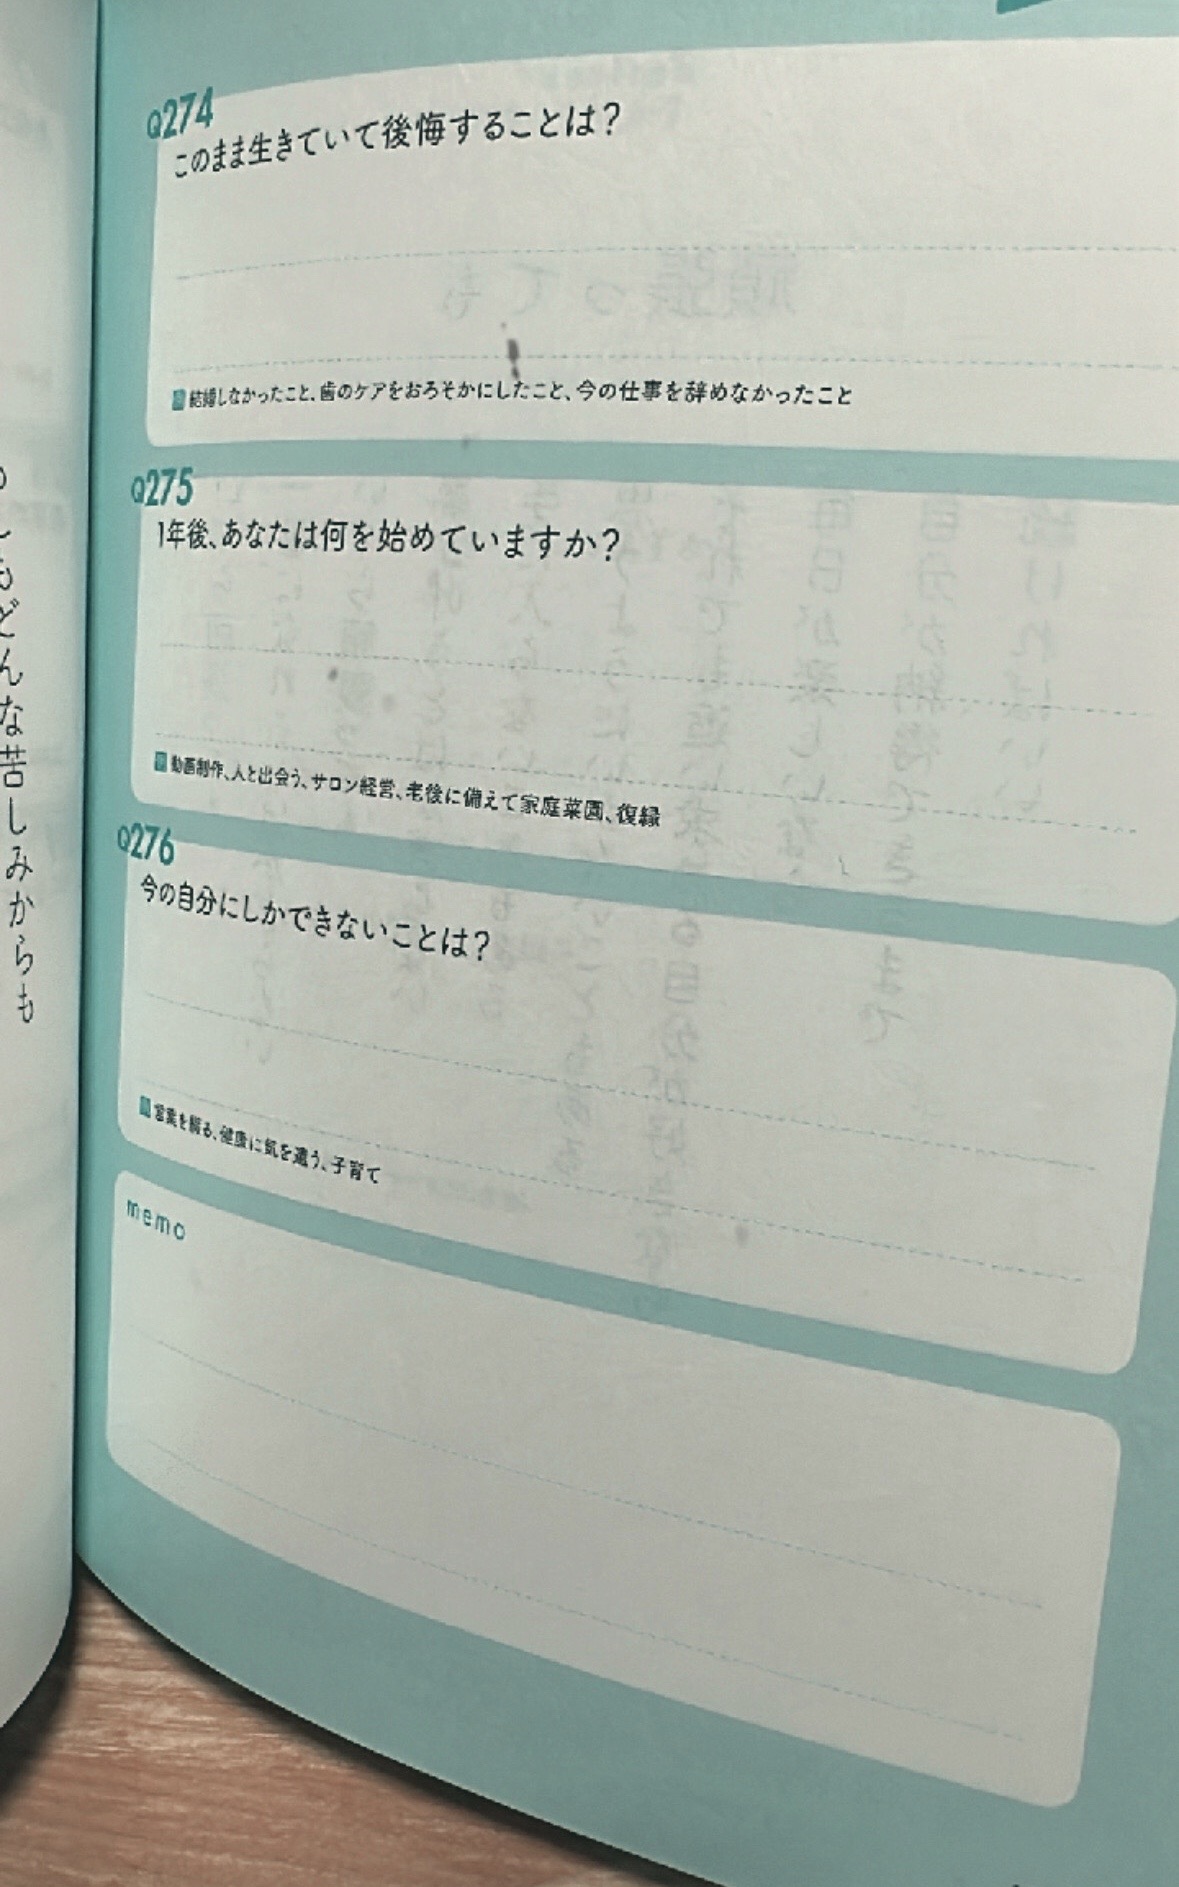 Q274
このまま生きていて後悔することは？
結婚しなかったこと、歯のケアをおろそかにしたこと、今の仕事を辞めなかったこと
Q275
1年後、あなたは何を始めていますか？
動画制作、人と出会う、サロン経営、老後に備えて家庭菜園、復縁
Q276
今の自分にしかできないことは？
言葉を綴る、健康に気を遣う、子育て
memo
もどんな苦しみからも